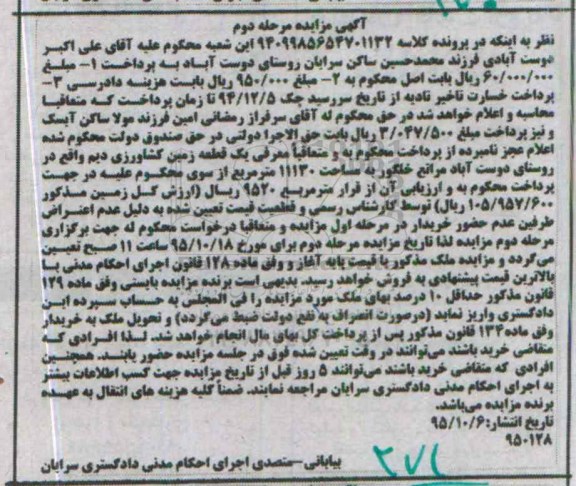 آگهی مزایده مرحله دوم
نظر به اینکه در پرونده کلاسه ۹۴۰۹۹۸۵۶۵۴۷۰۱۱۳۲ این شعبه محکوم علیه آقای علی اکبر
دوست آبادی فرزند محمدحسین ساکن سرایان روستای دوست آباد به پرداخت ۱- مبلغ
۶۰/۰۰۰/۰۰۰ ریال بابت اصل محکوم به ۲- مبلغ ۹۵۰/۰۰۰ ریال بابت هزینه دادرسی ۳-
پرداخت خسارت تاخیر تادیه از تاریخ سررسید چک ۹۴/۱۲/۵ تا زمان پرداخت که متعاقبا
محاسبه و اعلام خواهد شد در حق محکوم له آقای سرفراز رمضانی امین فرزند مولا ساکن آیسک
و نیز پرداخت مبلغ ۳/۰۴۷/۵۰۰ ریال بابت حق الاجرا دولتی در حق صندوق دولت محکوم شده
اعلام عجز نامبرده از پرداخت و متعاقباً معرفی یک قطعه زمین کشاورزی دیم واقع در
روستای دوست آباد مراتع خلگور به مساحت ۱۱۱۳۰ مترمربع از سوی محکوم علیه در جهت
پرداخت محکوم به و ارزیابی آن از قرار مترمربع ۹۵۲۰ ریال (ارزش کل زمین مذکور
۱۰۵/۹۵۷/۶۰۰ ریال) توسط کارشناس رسمی و قطعیت قیمت تعیین شده به دلیل عدم اعتراض
طرفین عدم حضور خریدار در مرحله اول مزایده و متعاقبا درخواست محکوم له جهت برگزاری
مرحله دوم مزایده لذا تاریخ مزایده مرحله دوم برای مورخ ۹۵/۱۰/۱۸ ساعت ۱۱ صبح تعیین
می‌گردد و مزایده ملک مذکور با قیمت پایه آغاز و وفق ماده ۱۲۸ قانون اجرای احکام مدنی با
بالاترین قیمت پیشنهادی به فروش خواهد رسید. بدیهی است برنده مزایده بایستی وفق ماده ۱۲۹
قانون مذکور حداقل ۱۰ درصد بهای ملک مورد مزایده را فی المجلس به حساب سپرده این
دادگستری واریز نماید (درصورت انصراف به نفع دولت ضبط می‌گردد) و تحویل ملک به خریدار
وفق ماده ۱۳۴ قانون مذکور پس از پرداخت کل بهای مال انجام خواهد شد. لذا افرادی که
متقاضی خرید باشند می‌توانند در وقت تعیین شده فوق در جلسه مزایده حضور یابند. همچنین
افرادی که متقاضی خرید باشند می‌توانند ۵ روز قبل از تاریخ مزایده جهت کسب اطلاعات بیشتر
به اجرای احکام مدنی دادگستری سرایان مراجعه نمایند. ضمناً کلیه هزینه های انتقال به عهده
برنده مزایده می‌باشد.
تاریخ انتشار: ۹۵/۱۰/۶
۹۵۰۱۲۸
بیابانی-متصدی اجرای احکام مدنی دادگستری سرایان